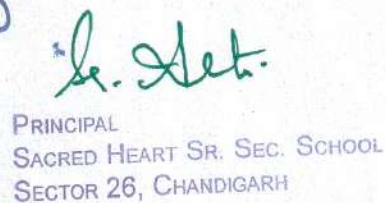 Sr.
PRINCIPAL
SACRED HEART SR. SEC. SCHOOL
SECTOR 26, CHANDIGARH